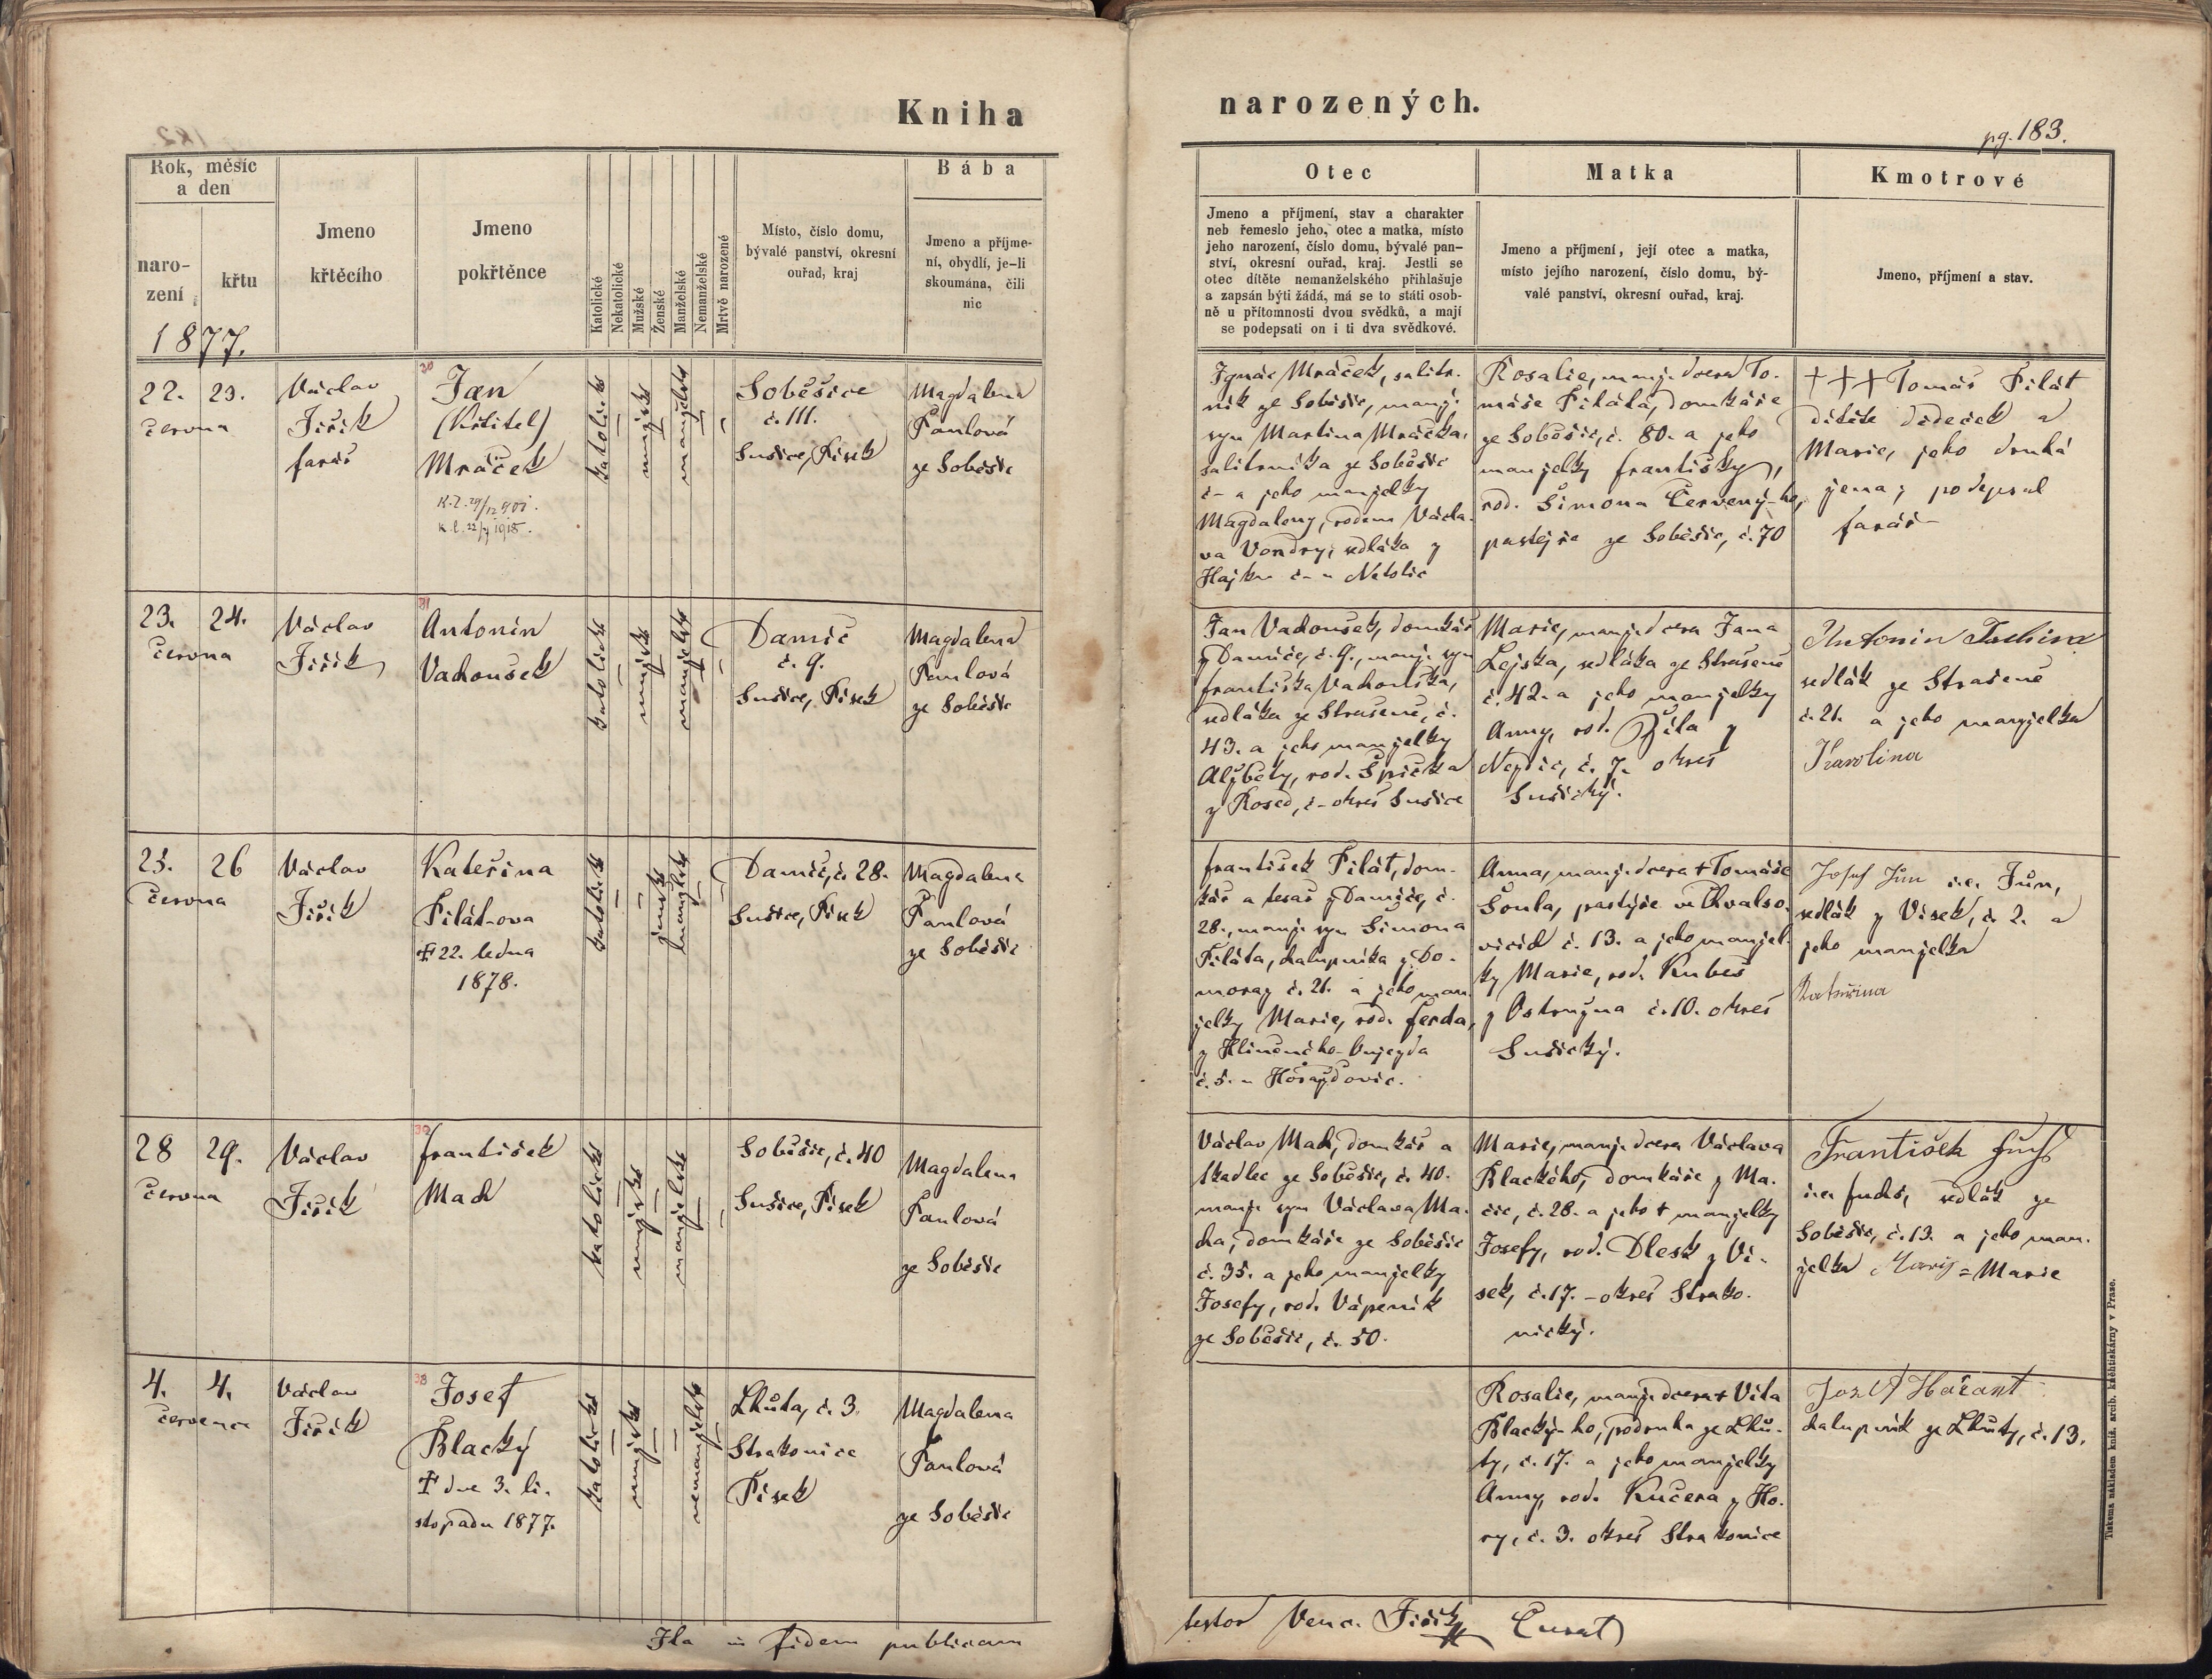 Kniha
narozených.
pg. 183.
Rok, měsíc
a den
naro-
zení
křtu
1877.
Jmeno
křtěcího
Jmeno
pokřtěnce
Katolické
Nekatolické
Mužské
Ženské
Manželské
Nemanželské
Mrtvě narozené
Místo, číslo domu,
bývalé panství, okresní
ouřad, kraj
Bába
Jmeno a příjme-
ní, obydlí, je-li
skoumána, čili
nic
Otec
Jmeno a příjmení, stav a charakter
neb řemeslo jeho, otec a matka, místo
jeho narození, číslo domu, bývalé pan-
ství, okresní ouřad, kraj. Jestli se
otec dítěte nemanželského přihlašuje
a zapsán býti žádá, má se to státi osob-
ně u přítomnosti dvou svědků, a mají
se podepsati on i ti dva svědkové.
Matka
Jmeno a příjmení, její otec a matka,
místo jejího narození, číslo domu, bý-
valé panství, okresní ouřad, kraj.
Kmotrové
Jmeno, příjmení a stav.
22. 23.
června
Václav
Jiřík
farář
30
Jan
(Křtitel)
Mráček
katolické
mužské
manželské
Soběšice
č. 111.
Sušice, Písek
Magdalena
Pavlová
ze Soběšic
Ignác Mráček, salitr-
ník ze Soběšic, manž.
syn Martina Mráčka,
salitrníka ze Soběšic
č- a jeho manželky
Magdaleny, rodem Václa-
va Vondry, sedláka z
Hájku č- u Netolic
Rosalie, manž. dcera To-
máše Piláta, domkáře
ze Soběšic, č. 80. a jeho
manželky Františky,
rod. Šimona Červený-ho,
pastejře ze Soběšic, č. 70
+++ Tomáš Pilát
dítěte dědeček a
Marie, jeho druhá
žena; podepsal
farář-
23. 24.
června
Václav
Jiřík
31
Antonín
Vachoušek
katolické
mužské
manželské
Damič
č. 9.
Sušice, Písek
Magdalena
Pavlová
ze Soběšic
Jan Vachoušek, domkář
z Damíče, č. 9., manž. syn
Františka Vachouška,
sedláka ze Strašeně, č.
43. a jeho manželky
Alžběty, rod. Špička
z Rosed, č- okres Sušice
Marie, manž. dcera Jana
Lejska, sedláka ze Strašeně
č. 42. a jeho manželky
Anny, rod. Žíla z
Nezdic, č. 7. okres
Sušický.
Antonin
sedlák ze Strašeně
č. 21. a jeho manželka
Karolina
25. 26
června
Václav
Jiřík
Kateřina
Pilátova
✝ 22. ledna
1878.
katolické
ženské
manželské
Damíč, č. 28.
Sušice, Písek
Magdalena
Pavlová
ze Soběšic
František Pilát, dom-
kář a tesař z Damíče, č.
28., manž. syn Šimona
Piláta, chalupníka z Do-
moraz č. 21. a jeho man-
želky Marie, rod. Ferda,
z Hliněného-Oujezda
č. 5. u Horažďovic.
Anna, manž. dcera + Tomáše
Šoula, pastýře ve Chvalšo-
vicích č. 13. a jeho manžel-
ky Marie, rod. Kubeš
z Ostružna č. 10. okres
Sušický.
Josef Jůn Jůn,
sedlák z Vísek, č. 2. a
jeho manželka
Kateřina
28 29.
června
Václav
Jiřík
František
Mach
katolické
mužské
manželské
Soběšic, č. 40
Sušice, Písek
Magdalena
Pavlová
ze Soběšic
Václav Mach, domkář a
tkadlec ze Soběšic, č. 40.
manž. syn Václava Ma-
cha, domkáře ze Soběšic
č. 35. a jeho manželky
Josefy, rod. Vápeník
ze Soběšic, č. 50.
Marie, manž. dcera Václava
Blackého, domkáře z Ma-
čic, č. 28. a jeho + manželky
Josefy, rod. Dlesk z Ví-
sek, č. 17. - okres Strako-
nický.
František Fuchs
Fuchs, sedlák ze
Soběšic, č. 13. a jeho man-
želka = Marie
4. 4.
července
Václav
Jiřík
33
Josef
Blacký
✝ dne 3. li-
stopadu 1877.
katolické
mužské
nemanželské
Lhůta, č. 3.
Strakonice
Písek
Magdalena
Pavlová
ze Soběšic
Rosalie, manž. dcera + Víta
Blacký-ho, podruha ze Lhů-
ty, č. 17. a jeho manželky
Anny, rod. Kučera z Ho-
ry, č. 3. okres Strakonice
Josef Hařant
chalupník ze Lhůty, č. 13.
Ita in fidem publicam
testor Venc. Jiřík Curat
Tiskem a nákladem kníž. arcib. knihtiskárny v Praze.